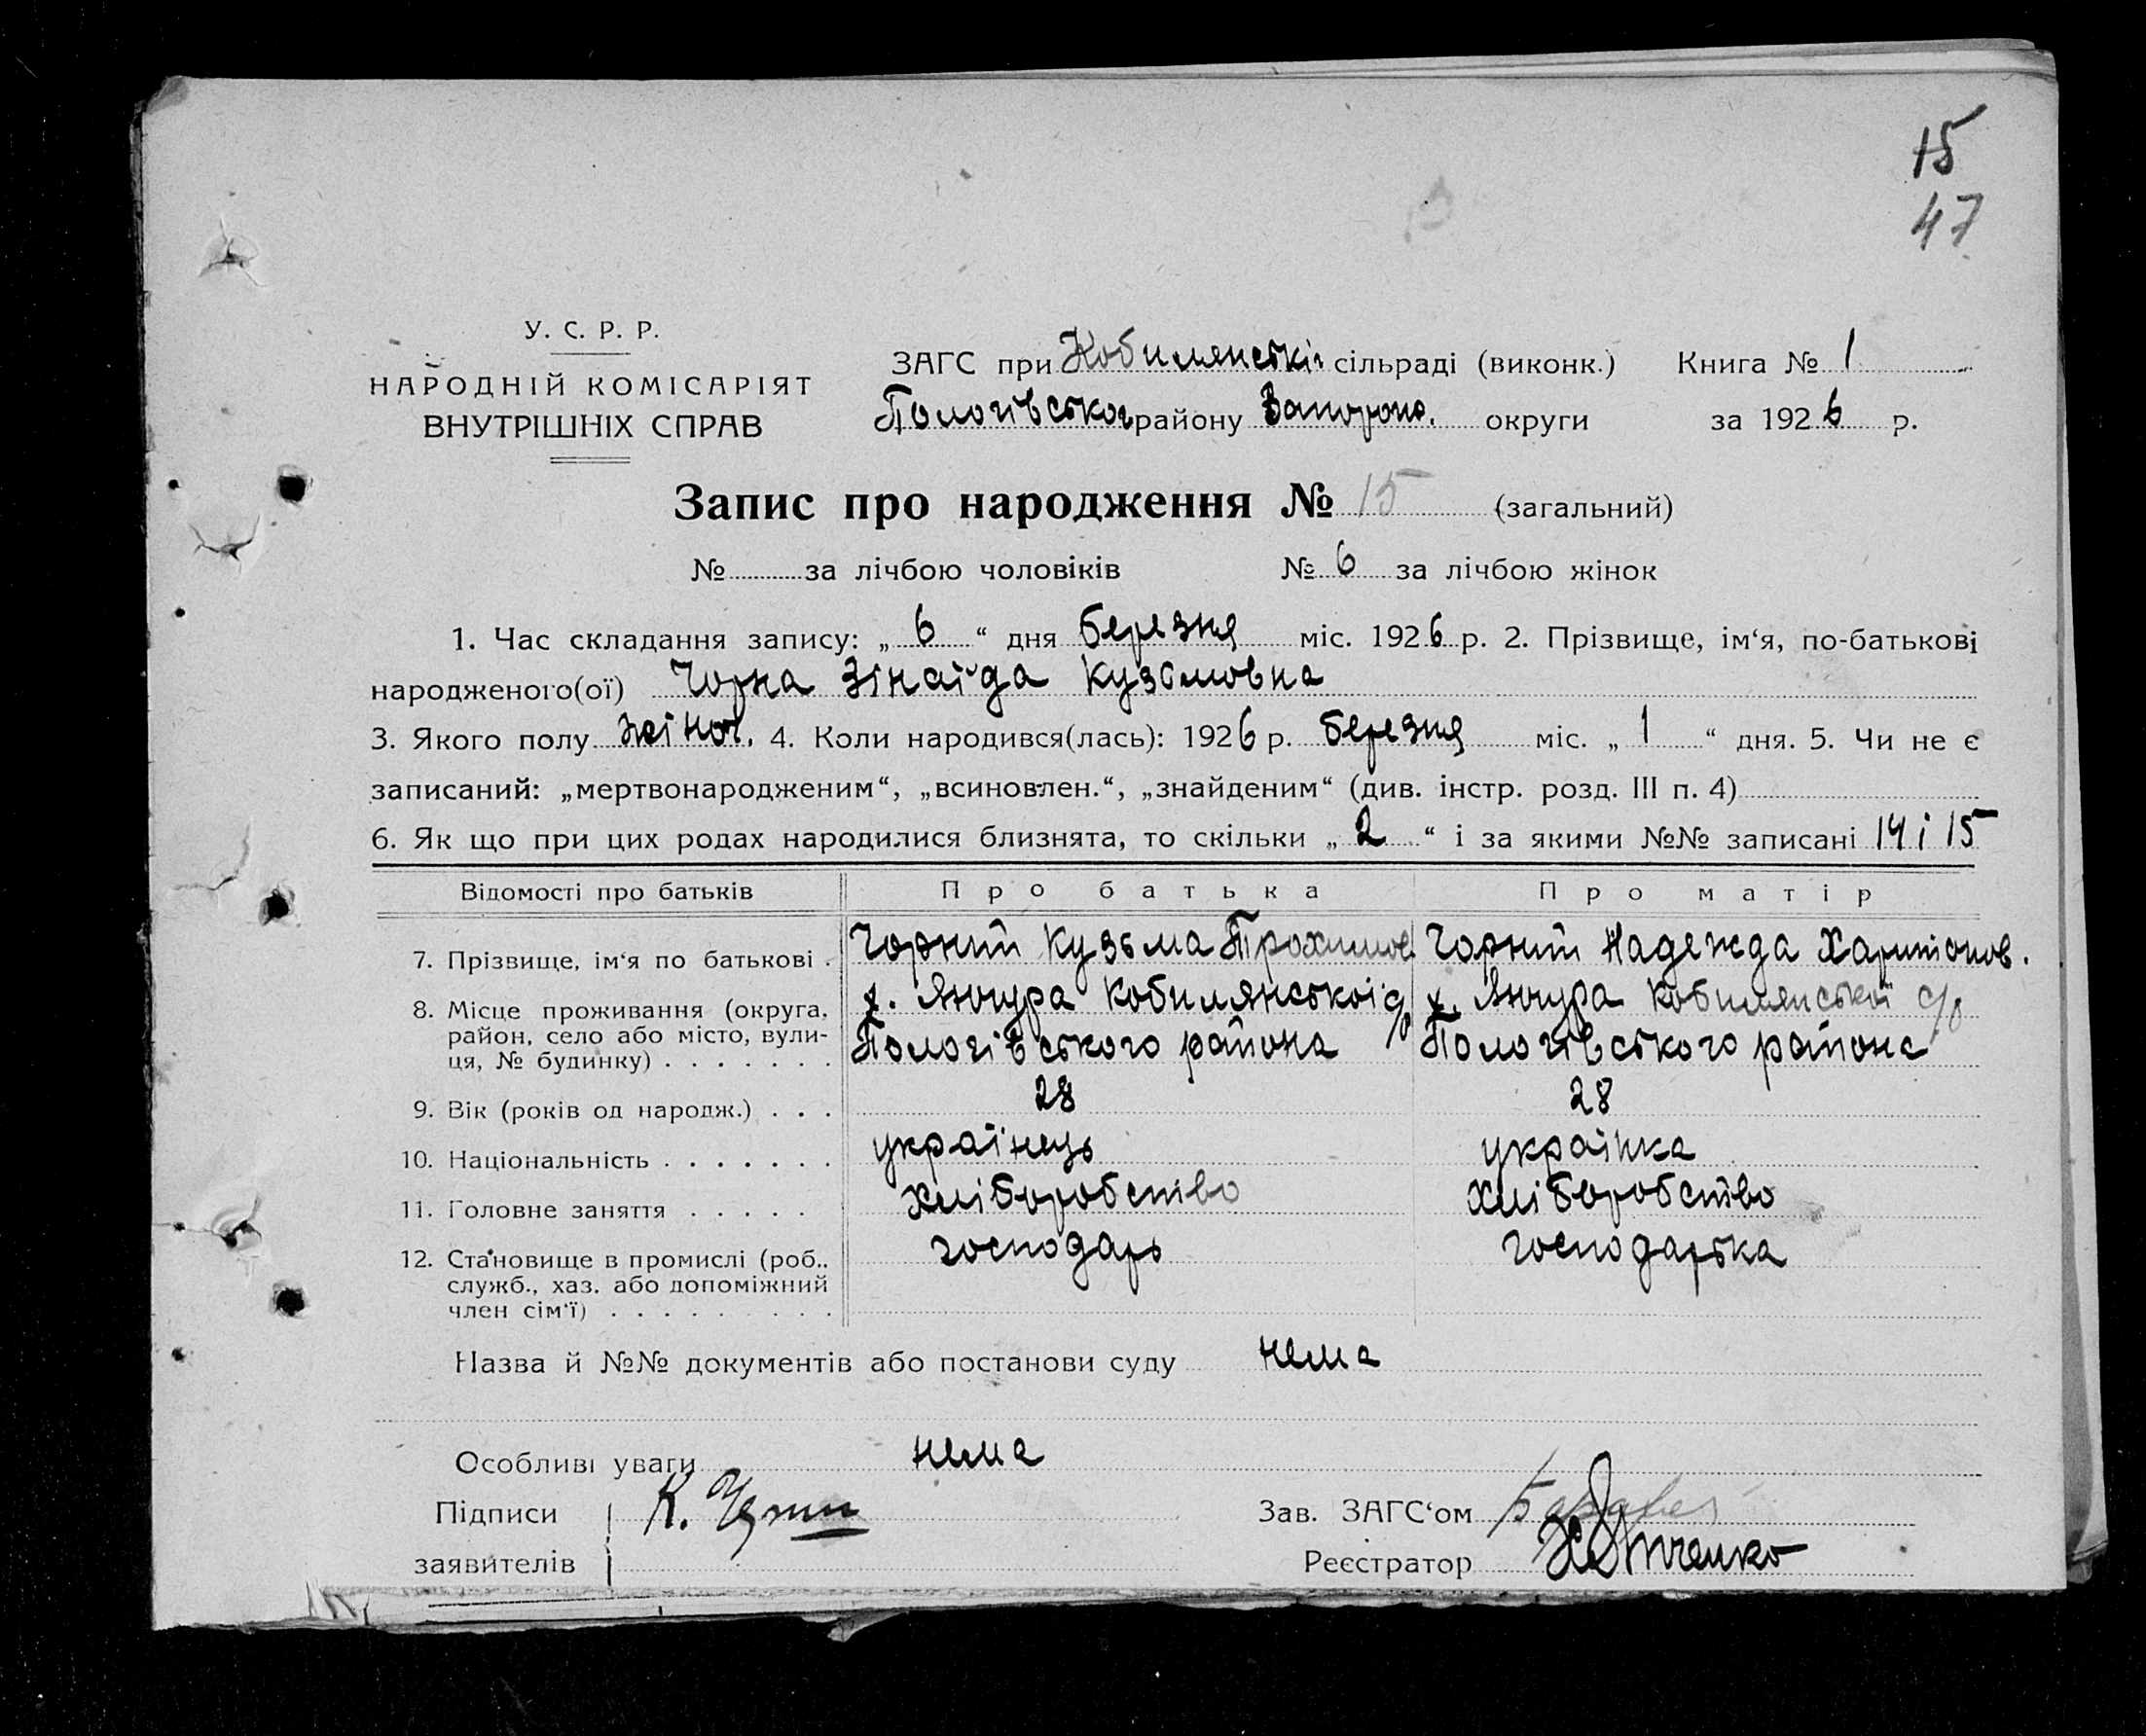 15
47
У. С. Р. Р.
НАРОДНІЙ КОМІСАРІЯТ
ВНУТРІШНІХ СПРАВ
ЗАГС при Кобилянські сільраді (виконк.) Книга № 1
Пологівськог району Запорож. округи за 1926 р.
Запис про народження № 15 (загальний)
№ за лічбою чоловіків № 6 за лічбою жінок
1. Час складання запису: „ 6 “ дня березня міс. 1926 р. 2. Прізвище, ім‘я, по-батькові
народженого(ої) Чорна Зінаїда Кузьмовна
3. Якого полу жіноч. 4. Коли народився(лась): 1926 р. березня міс. „ 1 “ дня. 5. Чи не є
записаний: „мертвонародженим“, „всиновлен.“, „знайденим“ (див. інстр. розд. III п. 4)
6. Як що при цих родах народилися близнята, то скільки „ 2 “ і за якими №№ записані 14 і 15
Відомості про батьків Про батька Про матір
7. Прізвище, ім‘я по батькові . Чорний Кузьма Трохимов Чорний Надежда Харитонов.
8. Місце проживання (округа, х. Янчура Кобилянської с/р х. Янчура Кобилянської с/р
район, село або місто, вули- Пологівського района Пологівського района
ця, № будинку) . . . . . . .
9. Вік (років од народж.) . . . 28 28
10. Національність . . . . . . . українець українка
11. Головне заняття . . . . . хліборобство хліборобство
12. Становище в промислі (роб., господарь господарька
служб., хаз. або допоміжний
член сім‘ї) . . . . . . . . .
Назва й №№ документів або постанови суду нема
Особливі уваги нема
Підписи К. Чорний Зав. ЗАГС‘ом
заявителів Реєстратор